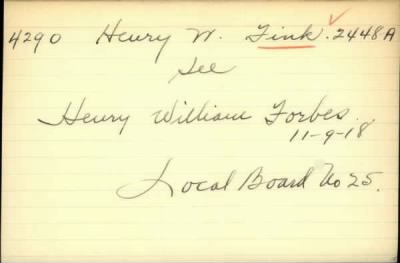 4290 Henry W. Fink. 2448A
See
Henry William Forbes.
11-9-18
Local Board No 25.